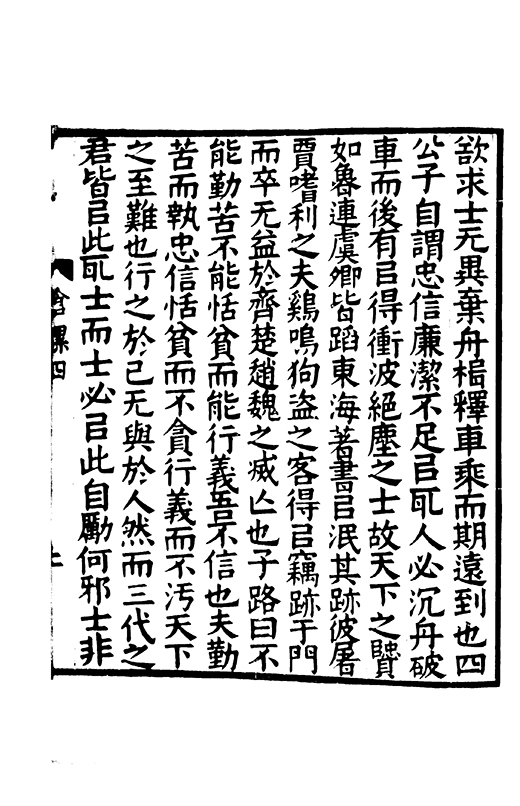 欲求士无異棄舟楫釋車乘而期遠到也四
公子自謂忠信廉潔不足㠯取人必沉舟破
車而後有㠯得衝波絕塵之士故天下之賢
如魯連虞卿皆蹈東海著書㠯泯其跡彼屠
賈嗜利之夫鷄鳴狗盗之客得㠯竊跡于門
而卒无益於齊楚趙魏之烕亾也子路曰不
能勤苦不能恬貧而能行義吾不信也夫勤
苦而執忠信恬貧而不貪行義而不汚天下
之至難也行之於己无與於人然而三代之
君皆㠯此取士而士必㠯此自勵何邪士非
四